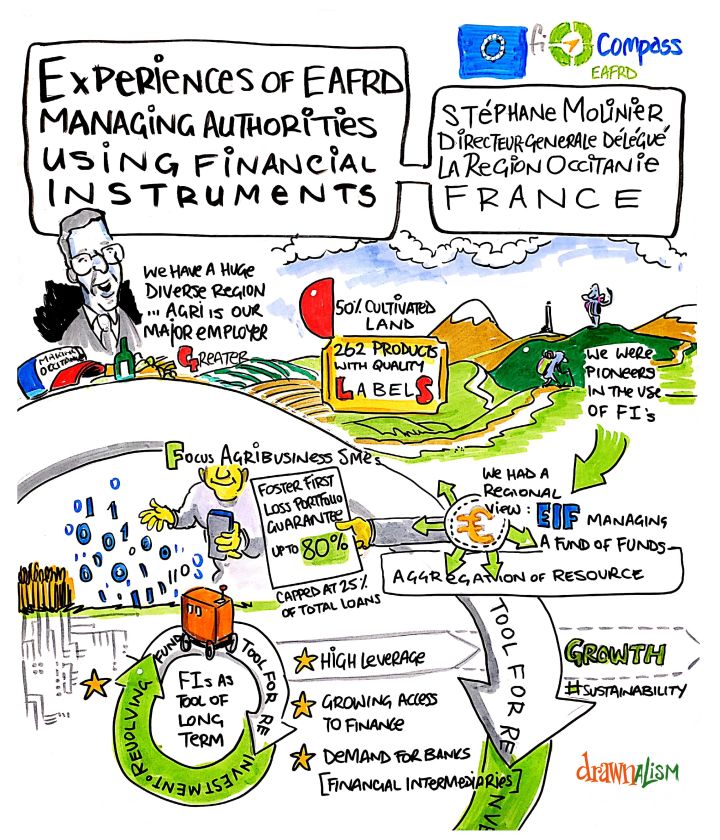 fi Compass
EAFRD
EXPERIENCES OF EAFRD
MANAGING AUTHORITIES
USING FINANCIAL
INSTRUMENTS
STÉPHANE MOLINIER
DIRECTEUR-GENERALE DÉLÉGUÉ
LA REGION OCCITANIE
FRANCE
WE HAVE A HUGE
DIVERSE REGION
... AGRI IS OUR
MAJOR EMPLOYER
GREATER
MAKING
50% CULTIVATED
LAND
262 PRODUCTS
WITH QUALITY
LABELS
WE WERE
PIONEERS
IN THE USE
OF FI's
FOCUS AGRIBUSINESS SMEs
FOSTER FIRST
LOSS PORTFOLIO
GUARANTEE
UP TO 80%
CAPPED AT 25%
OF TOTAL LOANS
WE HAD A
REGIONAL
VIEW: EIF MANAGING
A FUND OF FUNDS
AGGREGATION OF RESOURCE
€
FIs AS
TOOL OF
LONG
TERM
REVOLVING FUND TOOL FOR RE
INVESTMENT
HIGH LEVERAGE
GROWING ACCESS
TO FINANCE
DEMAND FOR BANKS
[FINANCIAL INTERMEDIARIES]
TOOL FOR RE
INVE
GROWTH
#SUSTAINABILITY
drawnalism